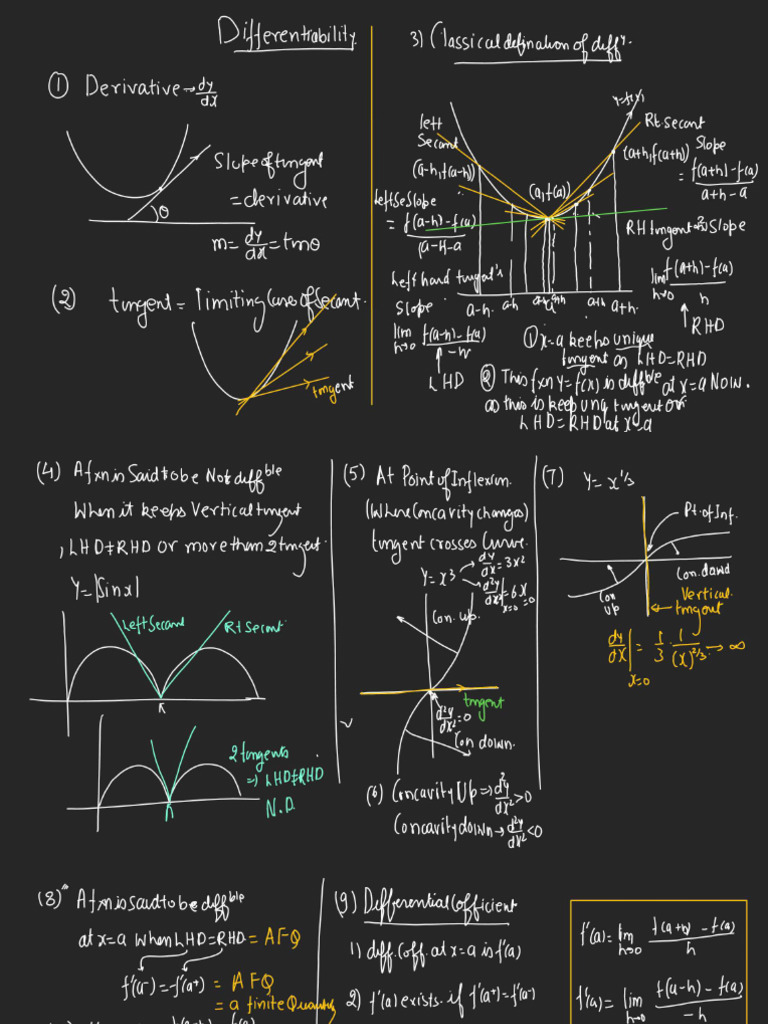 Differentiability
① Derivative → dy/dx
Slope of tangent
= derivative
θ
m = dy/dx = tanθ
(2) tangent = limiting case of Secant.
tangent
3) Classical defination of diffy.
y=f(x)
left
Secant
Rt. secant
(a-h, f(a-h))
(a, f(a))
(a+h, f(a+h))
Slope
= f(a+h)-f(a)/a+h-a
Left Se Slope
= f(a-h)-f(a)/(a-h-a
RH tangent's Slope
lim h→0 f(a+h)-f(a)/h
RHD
Left hand tangent's
Slope
a-h. a-h a-h a a+h a+h a+h.
lim h→0 f(a-h)-f(a)/-h
LHD
① x=a keeps unique
tangent as LHD=RHD
② This fxn y=f(x) is diffble at x=a Now.
as this is keep unq tangent or
LHD=RHD at x=a
(4) A fxn is Said to be Not diffble
When it keeps Vertical tangent
, LHD≠RHD or more than 2 tangent.
Y=|Sinx|
Left Secant
Rt Secant
π
2 tangents
⇒ LHD≠RHD
N.D.
π
(5) At Point of Inflexion.
(Where Concavity changes)
tangent crosses Curve.
Y=x3
dy/dx=3x²
d²y/dx²|x=0=6x=0
Con. up.
tangent
d²y/dx²=0
Con down.
(6) Concavity Up ⇒ d²y/dx²>0
Concavity down → d²y/dx²<0
(7) Y= x^1/3
Pt. of Inf.
Con up
Con. dawd
Vertical
tangent
dy/dx|x=0 = 1/3 · 1/(x)^2/3 → ∞
(8) A fxn is said to be diffble
at x=a when LHD=RHD = AFQ
f'(a-)=f'(a+) = AFQ
= a finite Quantity
(9) Differential Cofficient
1) diff. Coff. at x=a is f'(a)
2) f'(a) exists. if f'(a+)=f'(a-)
f'(a)= lim h→0 f(a+h)-f(a)/h
f'(a)= lim h→0 f(a-h)-f(a)/-h